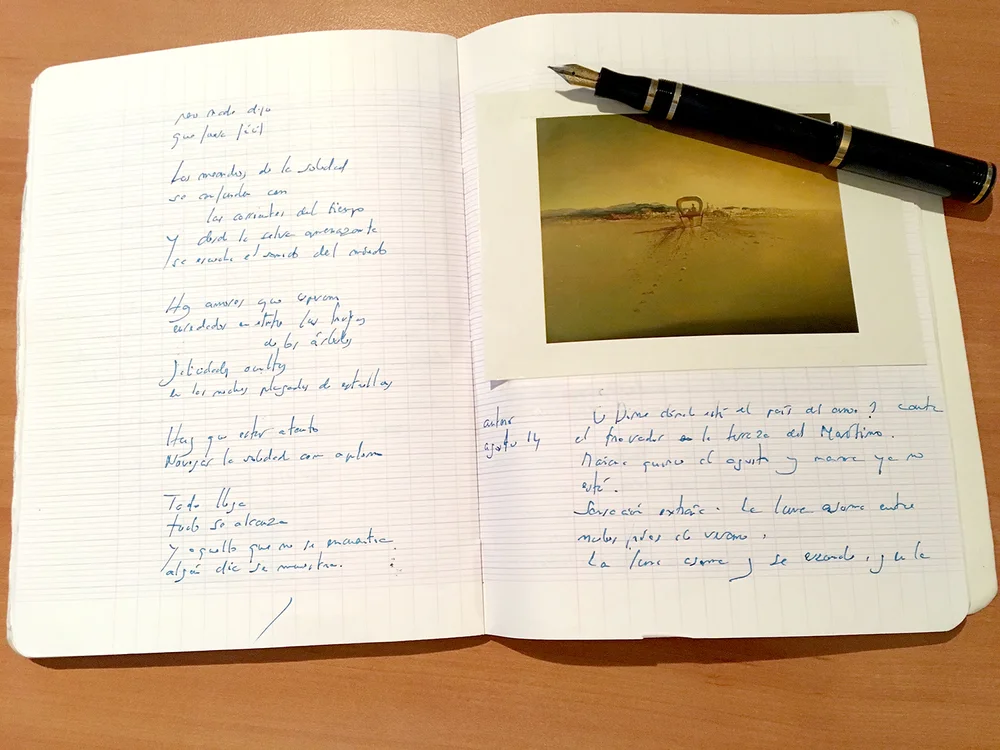 pero nadie dijo
que fuera fácil
Los meandros de la soledad
se confunden con
las corrientes del tiempo
y desde la selva amenazante
se escucha el sonido del mundo
Hay amores que esperan
enredados entre las hojas
de los árboles
felicidades ocultas
en las noches plagadas de estrellas
Hay que estar atento
Navegar la soledad con aplomo
Todo llega
todo se alcanza
y aquello que no se encuentra
algún día se muestra.
agosto 14
¿Dime dónde está el país del amor? canta
el trovador en la terraza del Marítimo.
Mañana quince de agosto y mamá ya no
está.
Sensación extraña. La luna asoma entre
nubes de verano.
La luna asoma y se esconde, y la